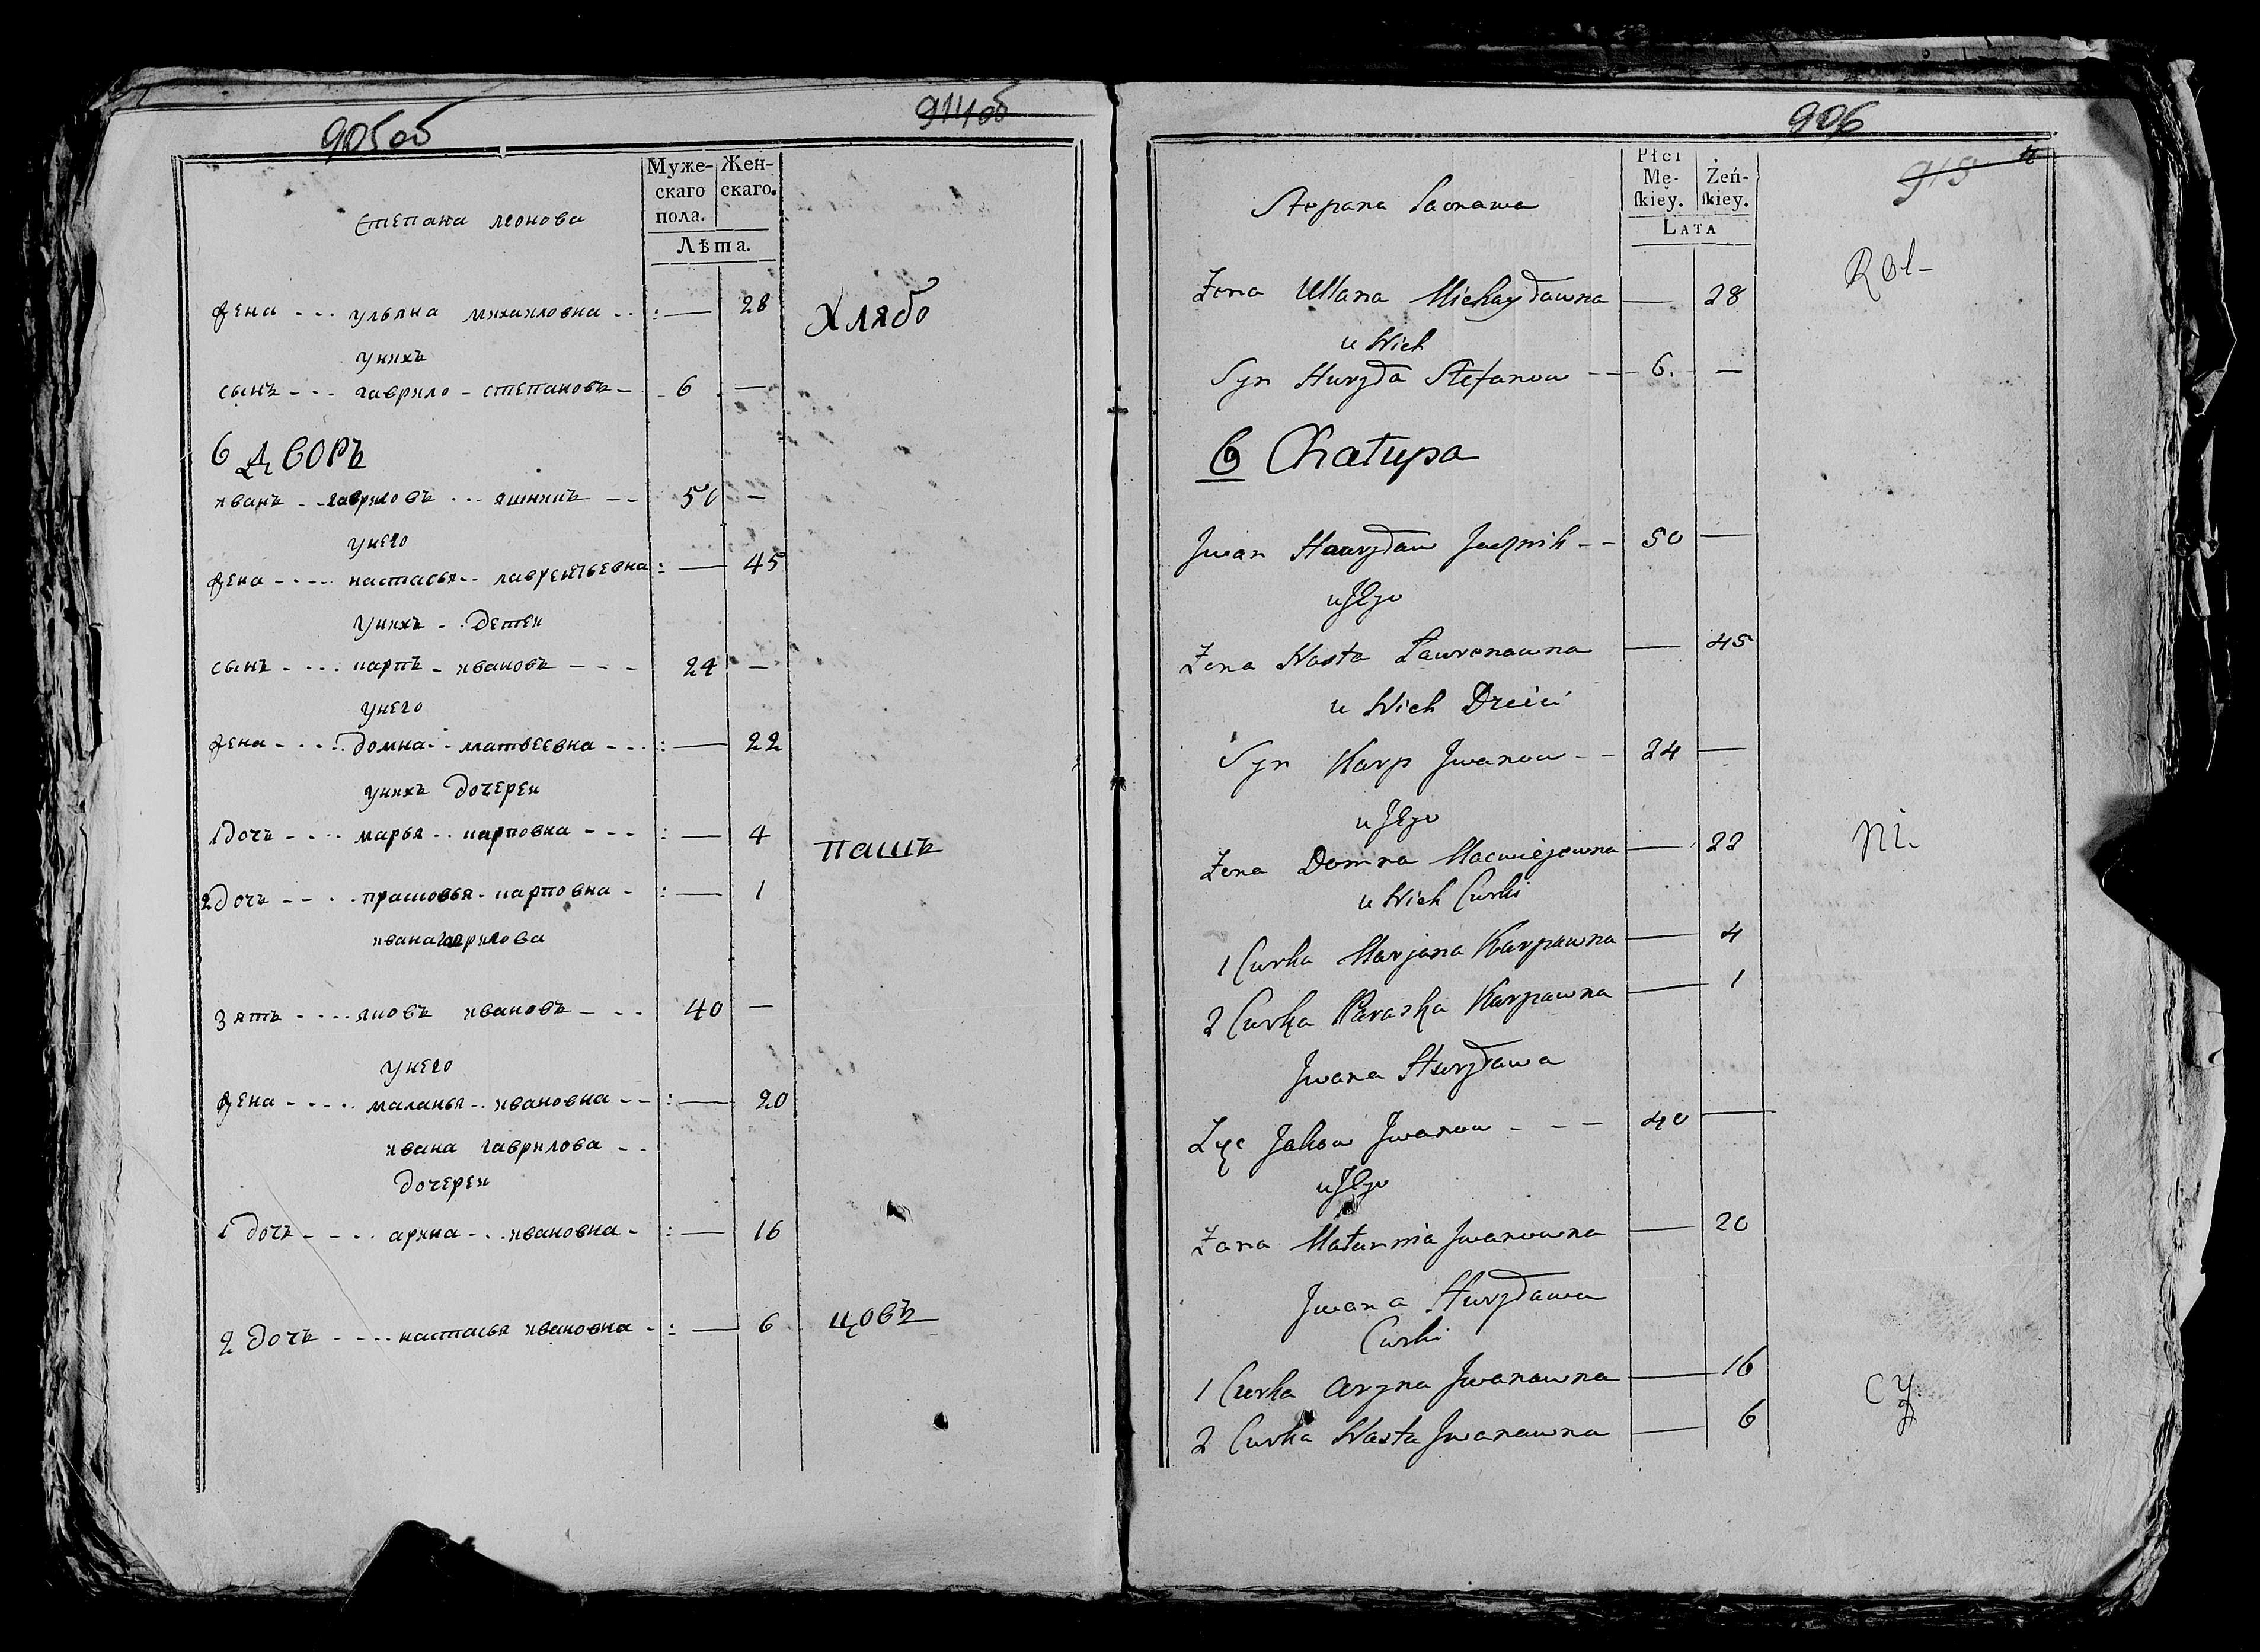 905об
914об
Муже-
скаго
пола.
Жен-
скаго.
Лѣта.
степана леонова
жена - - - ульяна михаиловна - - : — 28
Хлябо
унихъ
сынъ - - - гаврило - степановъ - - 6 —
6 дворъ
иванъ - - гавриловъ - - - яшникъ - - 50 —
унего
жена - - - - настасья - - лаврентьевна : — 45
унихъ - - детеи
сынъ - - - - карпъ - ивановъ - - - 24 —
унего
жена - - - - домна - - матвеевна - - - : — 22
унихъ дочереи
1 дочь - - - - марья - - карповна - - - : — 4
пашъ
2 дочь - - - - прасковья - карповна - : — 1
ивана гаврилова
зять - - - - яковъ ивановъ - - - 40 —
унего
жена - - - - маланья - - ивановна - - : — 20
ивана гаврилова - -
дочереи
1 дочь - - - - арина - - - ивановна - : — 16
2 дочь - - - - настасья ивановна - : — 6
цовъ
906
915
4
Płci
Mę-
skiey.
Żeń-
skiey.
Lata
Stepana Laonawa
Rol-
Żona Ullana Michayławna — 28
u Nich
Syn Hawryła Stefanow - - 6. —
6 Chałupa
Jwan Hawryław Jaesznik - - 50 —
u Jego
Żona Nasta Ławronawna — 45
u Nich Dzieci
Syn Karp Jwanow - - 24 —
u Jego
Żona Domna Macwiejewna — 22
ni.
u Nich Curki
1 Curka Marjana Karpawna — 4
2 Curka Paraska Karpawna — 1
Jwana Hawryława
Zięc Jakow Jwanow - - - 40 —
u Jego
Żona Małannia Jwanowna — 20
Jwana Hawryława
Curki
1 Curka Aryna Jwanawna — 16
cy
2 Curka Nasta Jwanawna — 6